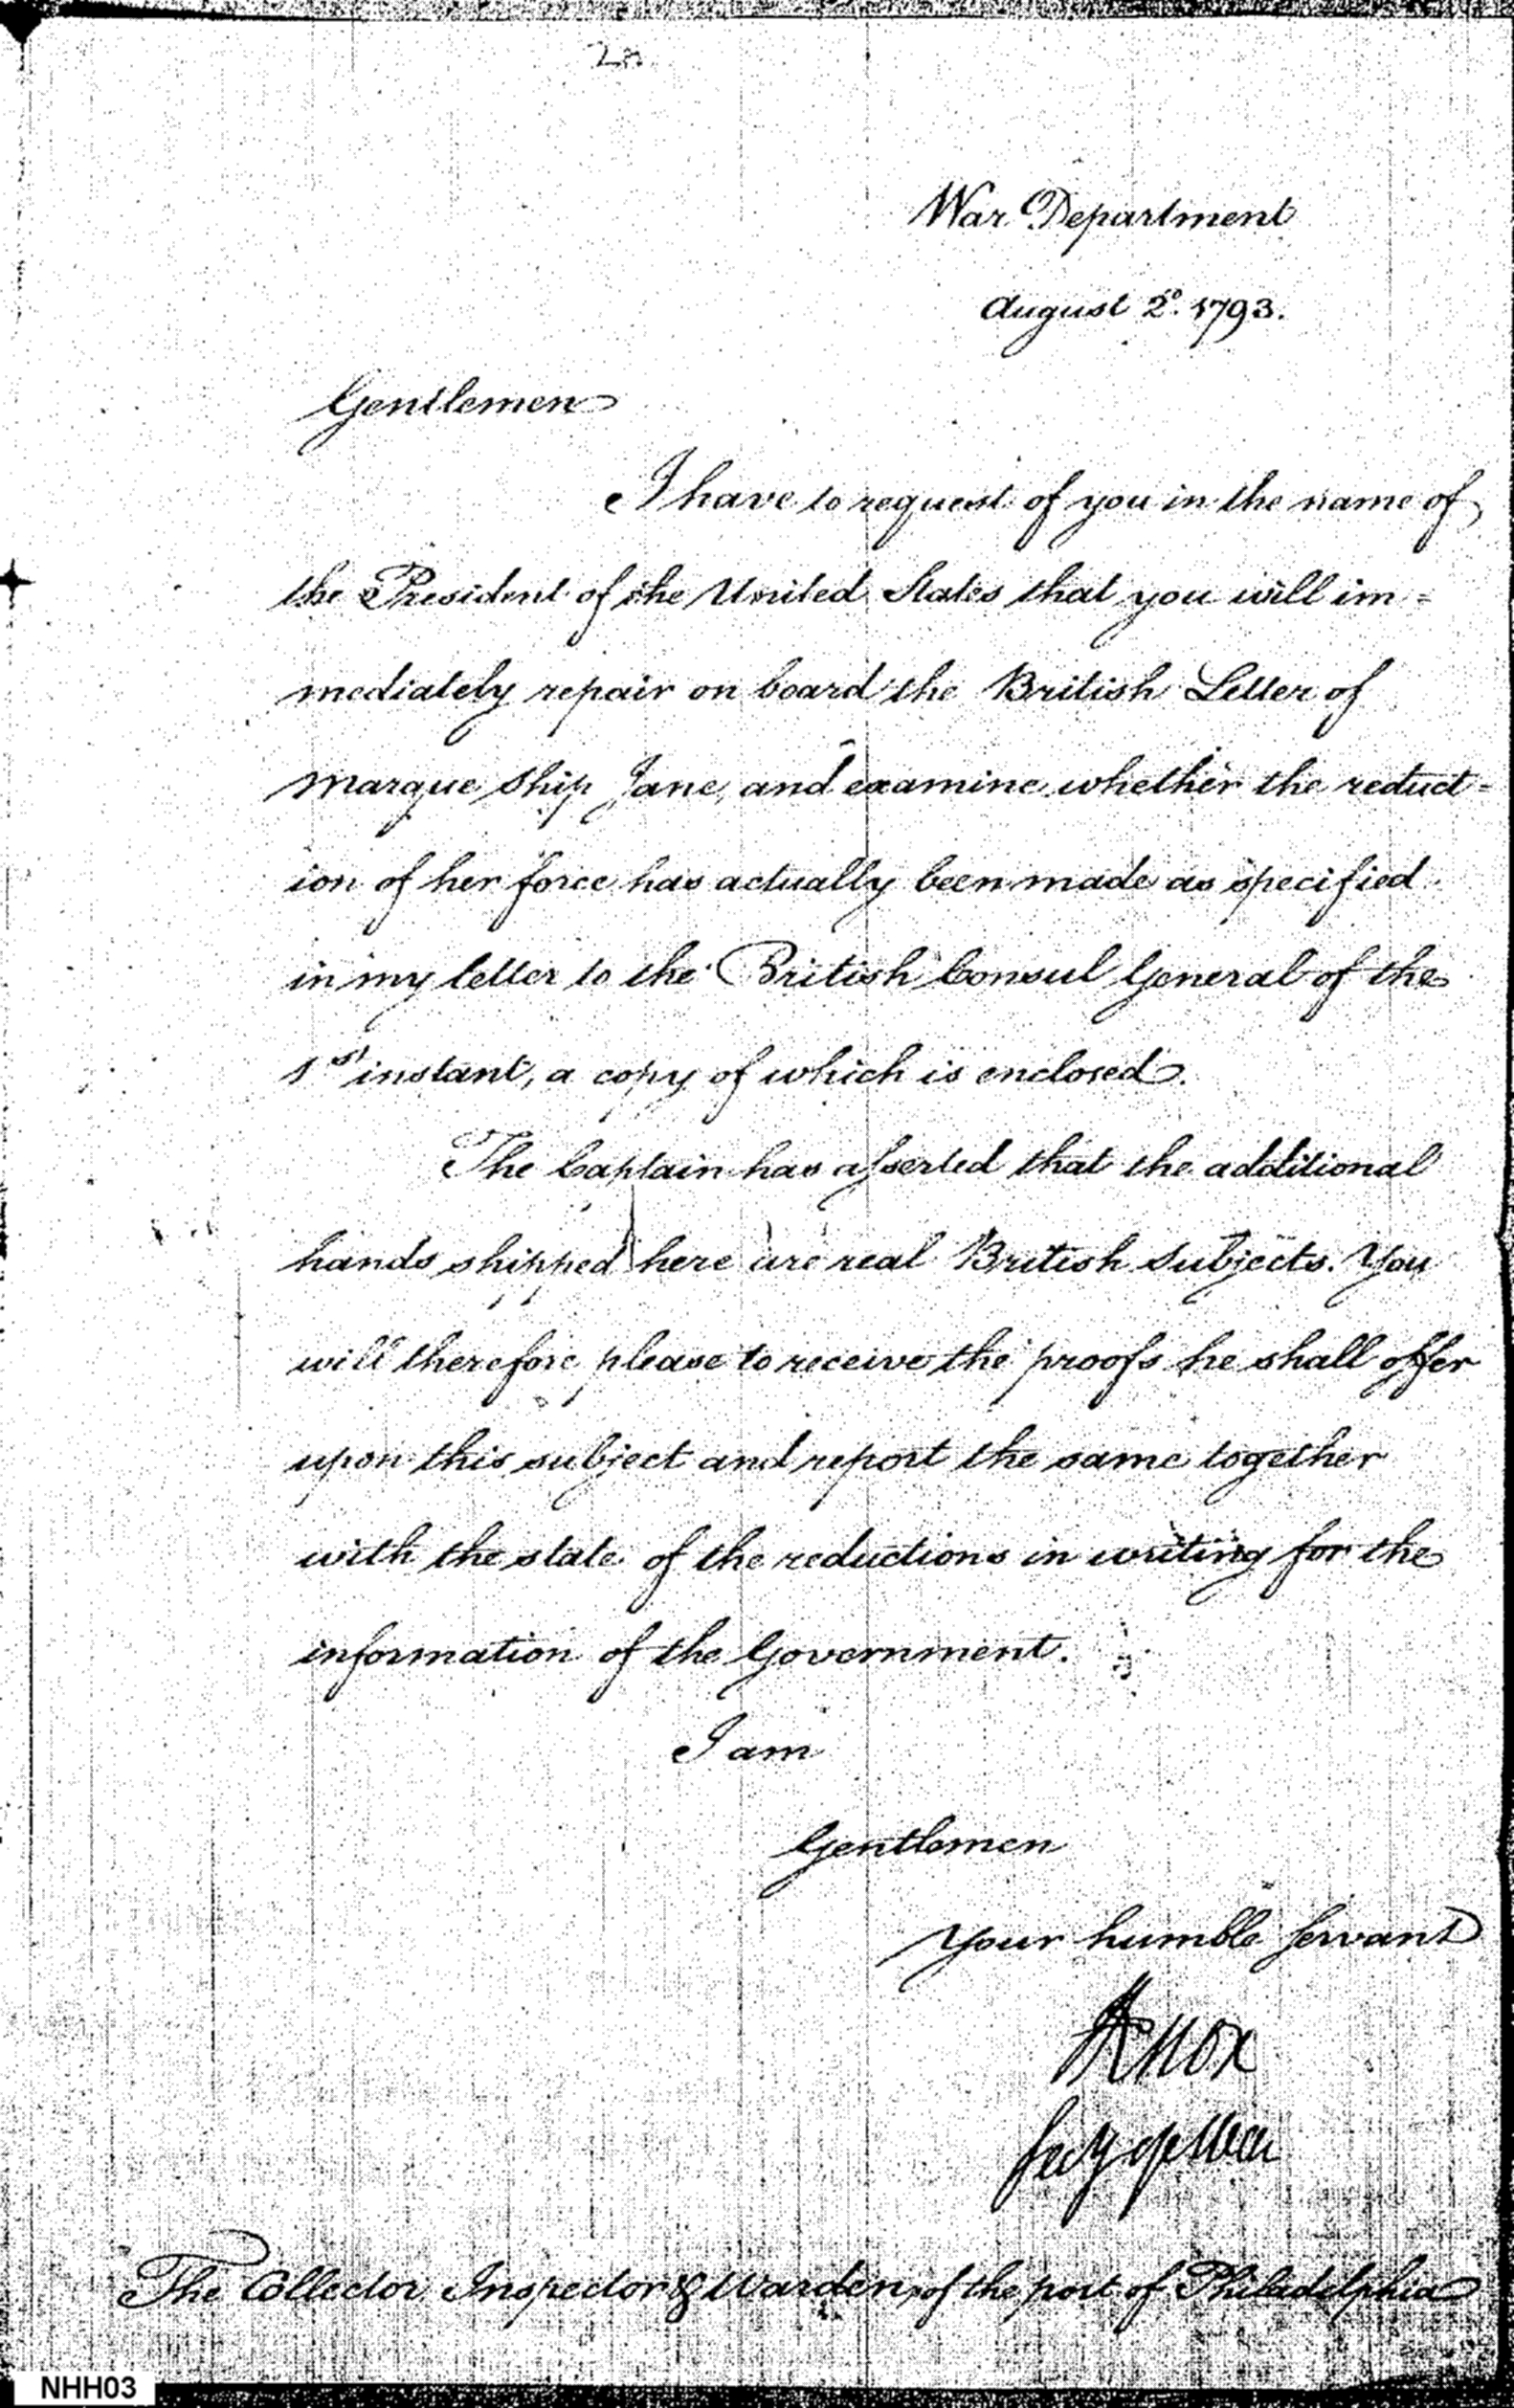 War Department
August 2º. 1793.
Gentlemen
I have to request of you in the name of
the President of the United States that you will im=
mediately repair on board the British Letter of
marque ship Jane, and examine whether the reduct=
ion of her force has actually been made as specified
in my letter to the British Consul General of the
1st instant, a copy of which is enclosed.
The Captain has aſserted that the additional
hands shipped here are real British subjects. You
will therefore please to receive the proofs he shall offer
upon this subject and report the same together
with the state of the reductions in writing for the
information of the Government.
I am
Gentlemen
Your humble servant
HKnox
Secy of War
The Collector Inspector & Warden, of the port of Philadelphia
NHH03